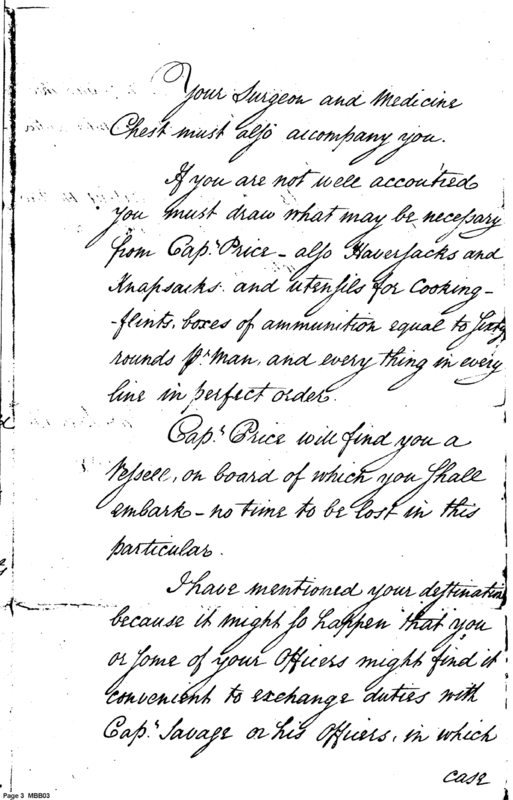 Your Surgeon and Medicine
Chest must also accompany you.
If you are not well accoutred
you must draw what may be necessary
from Capt. Price - also Haversacks and
Knapsacks and utensils for Cooking -
- flints, boxes of ammunition equal to sixty
rounds pr. Man, and every thing in every
line in perfect order.
Capt. Price will find you a
Vessell, on board of which you shall
embark - no time to be lost in this
particular.
I have mentioned your destination
because it might so happen that you
or some of your Officers might find it
convenient to exchange duties with
Capt. Savage or his Officers, in which
case
Page 3 MBB03